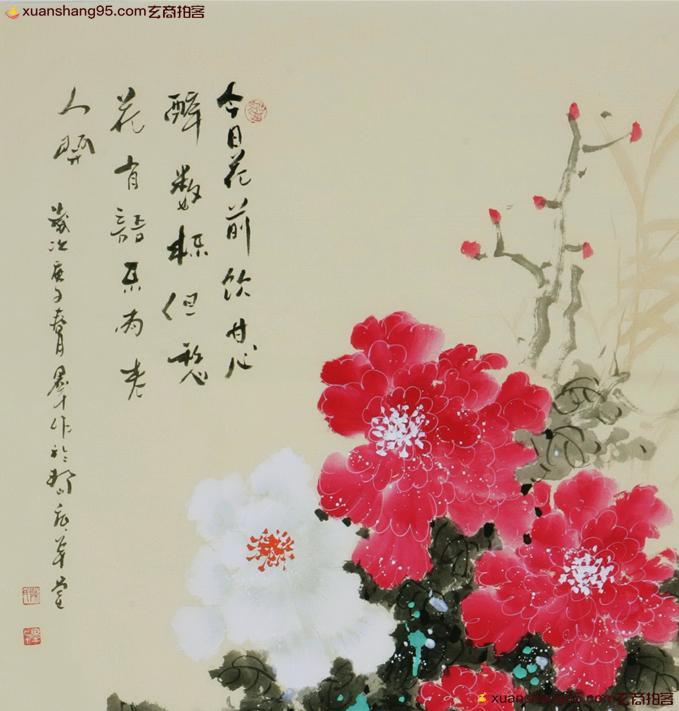 xuanshang95.com玄商拍客
今日花前饮甘心
醉数杯但愁
花有語不为老
人開
歲次庚子春月作於草堂
xuanshang95.com玄商拍客